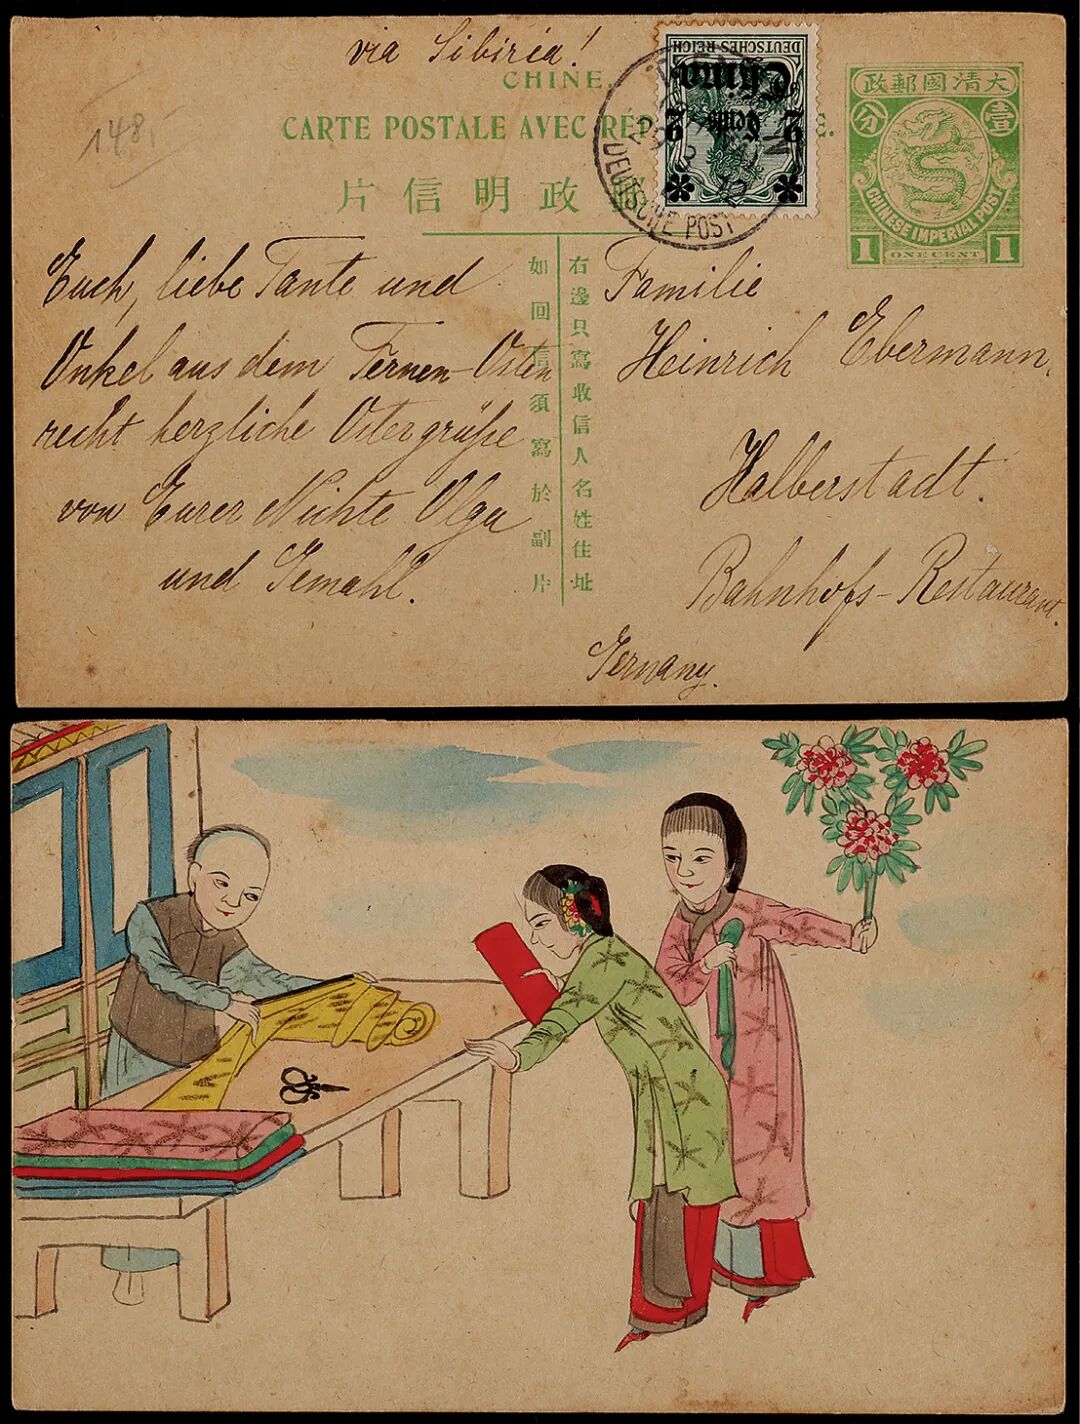 via Sibiria!
CHINE.
CARTE POSTALE AVEC RÉP
片信明政
148,-
DEUTSCHES REICH
China
2 Cents 2
DEUTSCHE POST
大清國郵政
壹分
CHINESE IMPERIAL POST
1 ONE CENT 1
右邊只寫收信人名姓住址
如回信須寫於副片
Euch, liebe Tante und
Onkel aus dem Fernen-Osten
recht herzliche Ostergrüße
von Eurer Nichte Olga
und Gemahl.
Familie
Heinrich Ebermann.
Halberstadt.
Bahnhofs-Restaurant.
Germany.